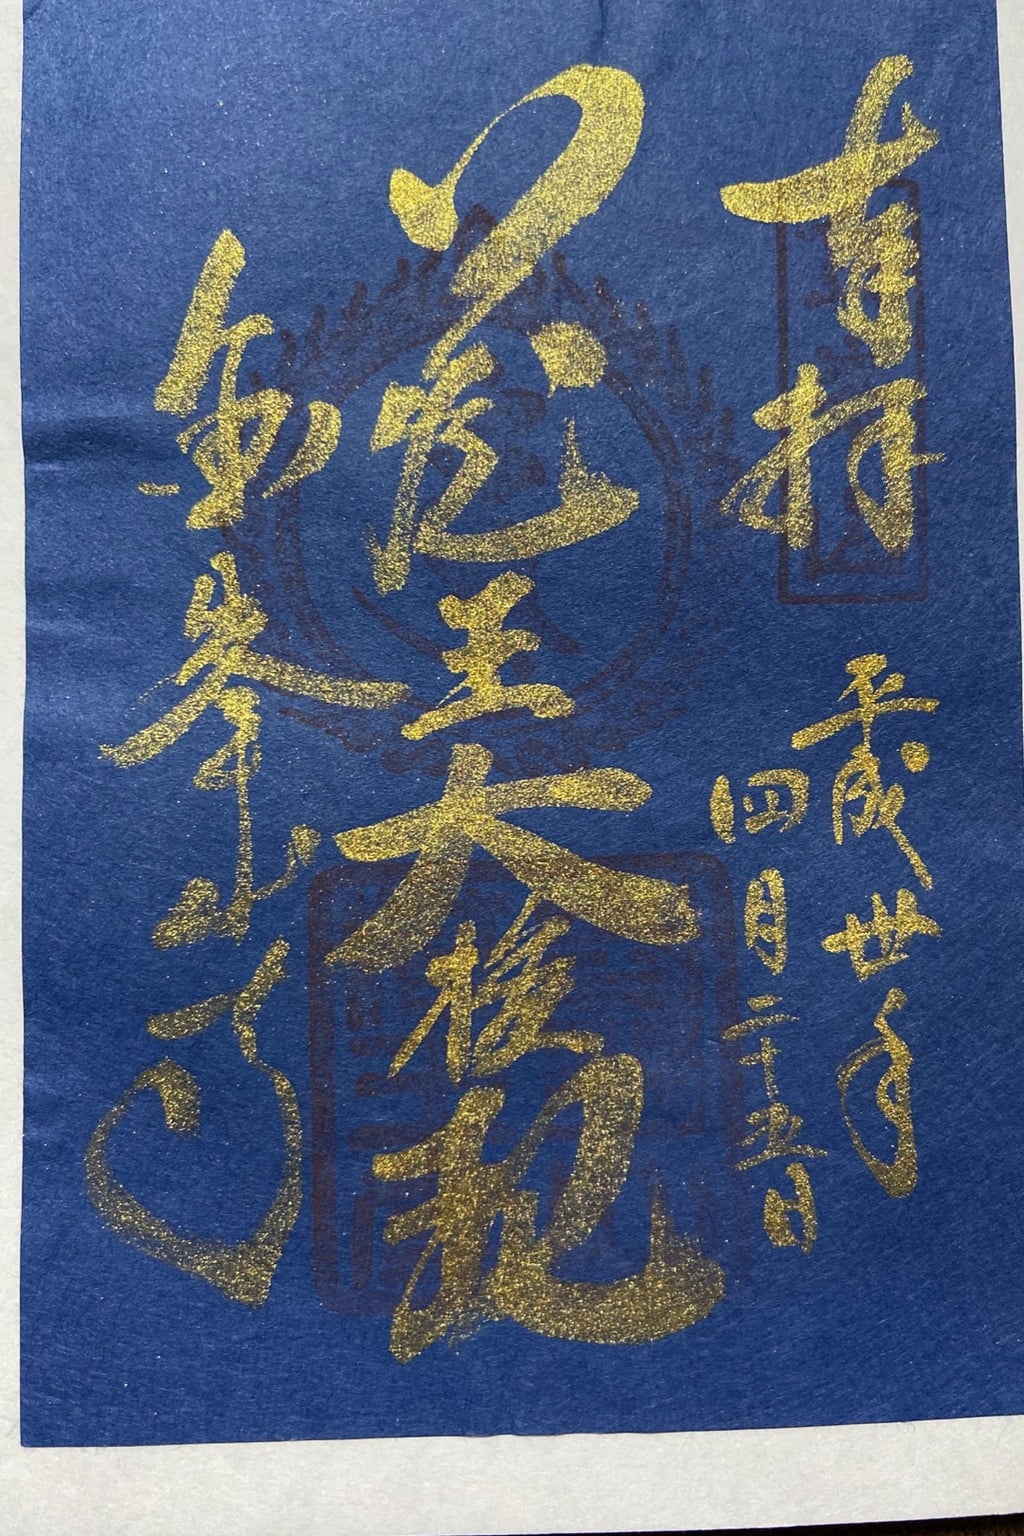 奉拝
平成卅年
四月二十五日
蔵王大権現
金峯山寺